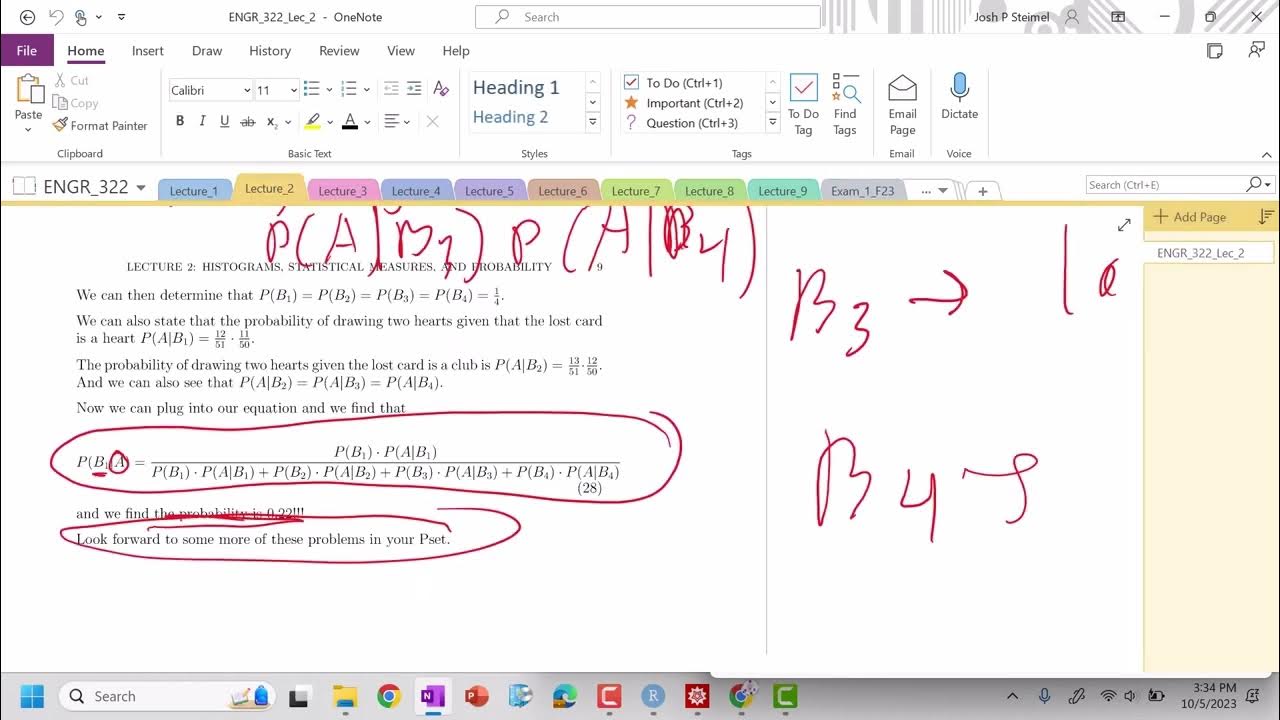 ENGR_322_Lec_2 - OneNote
Search
Josh P Steimel
File
Home
Insert
Draw
History
Review
View
Help
Paste
Cut
Copy
Format Painter
Clipboard
Calibri
11
B I U ab x₂ A
Basic Text
Heading 1
Heading 2
Styles
To Do (Ctrl+1)
Important (Ctrl+2)
Question (Ctrl+3)
To Do Tag
Find Tags
Tags
Email Page
Email
Dictate
Voice
ENGR_322
Lecture_1
Lecture_2
Lecture_3
Lecture_4
Lecture_5
Lecture_6
Lecture_7
Lecture_8
Lecture_9
Exam_1_F23
...
Search (Ctrl+E)
Add Page
ENGR_322_Lec_2
P(A|B₃) P(A|B₄)
LECTURE 2: HISTOGRAMS, STATISTICAL MEASURES, AND PROBABILITY 9
We can then determine that P(B₁) = P(B₂) = P(B₃) = P(B₄) = 1/4.
We can also state that the probability of drawing two hearts given that the lost card
is a heart P(A|B₁) = 12/51 · 11/50.
The probability of drawing two hearts given the lost card is a club is P(A|B₂) = 13/51 · 12/50.
And we can also see that P(A|B₂) = P(A|B₃) = P(A|B₄).
Now we can plug into our equation and we find that
P(B₁|A) = P(B₁) · P(A|B₁) / P(B₁) · P(A|B₁) + P(B₂) · P(A|B₂) + P(B₃) · P(A|B₃) + P(B₄) · P(A|B₄)
(28)
and we find the probability is 0.22!!!
Look forward to some more of these problems in your Pset.
B₃ →
B₄
Search
3:34 PM
10/5/2023